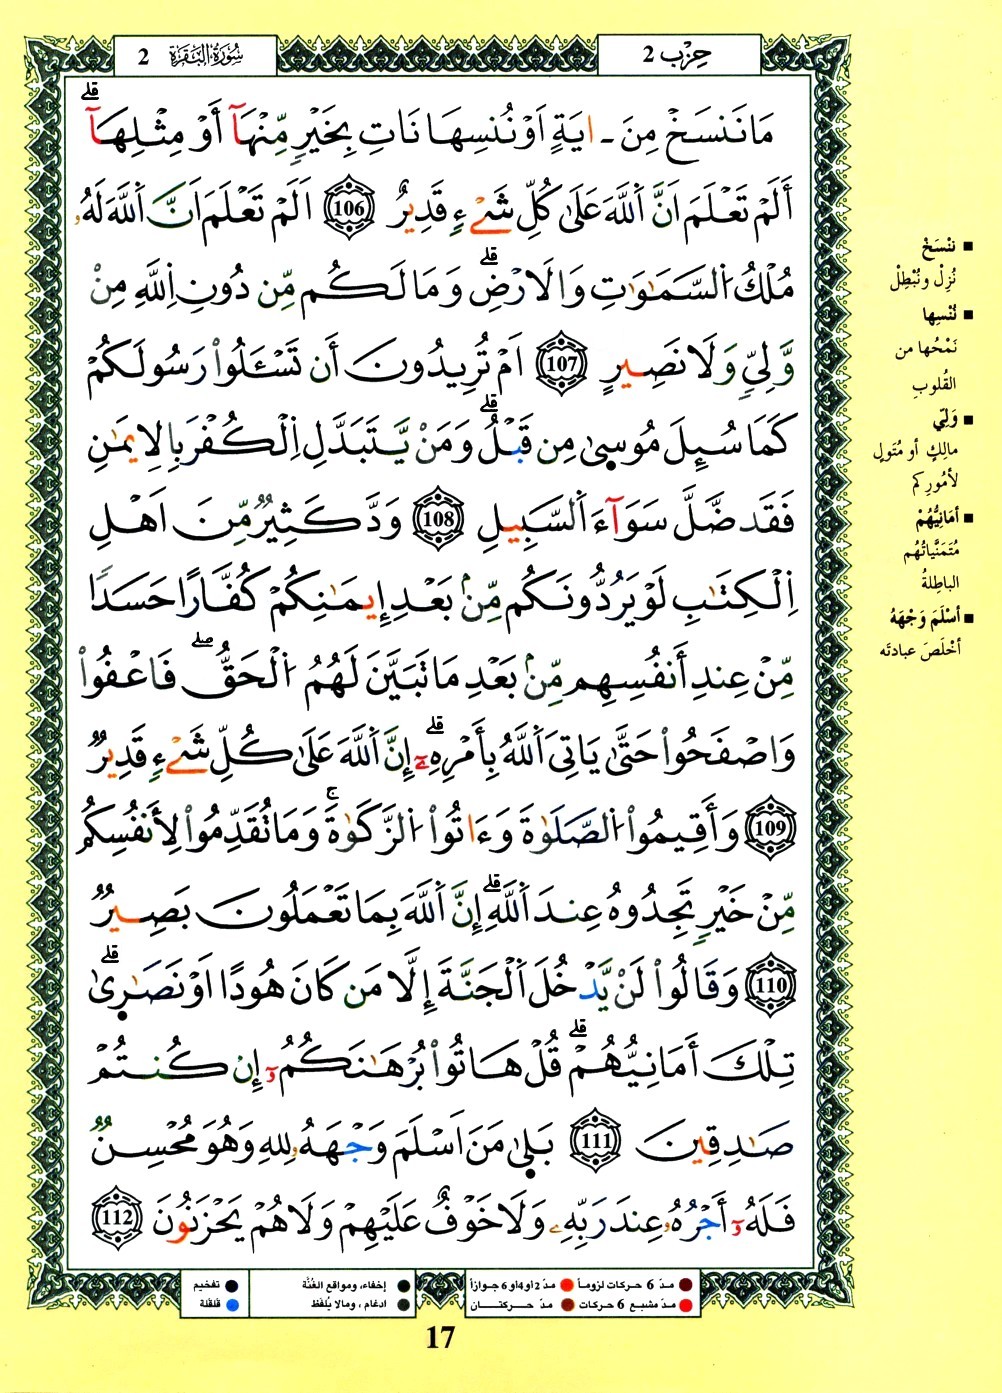 حِزْب 2
سُورَةُ البَقَرَة 2
مَا نَنسَخْ مِنَ ـ ايَةٍ اَوْ نُنسِهَا نَاتِ بِخَيْرٍ مِّنْهَآ أَوْ مِثْلِهَآۖ
أَلَمْ تَعْلَمَ اَنَّ اَ۬للَّهَ عَلَىٰ كُلِّ شَےْءٖ قَدِيرٌ 106 اَلَمْ تَعْلَمَ اَنَّ اَ۬للَّهَ لَهُۥ
مُلْكُ اُ۬لسَّمَٰوَٰتِ وَالَارْضِۖ وَمَا لَكُم مِّن دُونِ اِ۬للَّهِ مِنْ
وَّلِيّٖ وَلَا نَصِيرٍ 107 اَمْ تُرِيدُونَ أَن تَسْـَٔلُواْ رَسُولَكُمْ
كَمَا سُئِلَ مُوسۭيٰ مِن قَبْلُۖ وَمَنْ يَّتَبَدَّلِ اِ۬لْكُفْرَ بِالِايمَٰنِ
فَقَد ضَّلَّ سَوَآءَ اَ۬لسَّبِيلِ 108 وَدَّ كَثِيرٞ مِّنَ اَهْلِ
اِ۬لْكِتَٰبِ لَوْ يَرُدُّونَكُم مِّنۢ بَعْدِ إِيمَٰنِكُمْ كُفَّارًا حَسَدًا
مِّنْ عِندِ أَنفُسِهِم مِّنۢ بَعْدِ مَا تَبَيَّنَ لَهُمُ اُ۬لْحَقُّۖ فَاعْفُواْ
وَاصْفَحُواْ حَتَّىٰ يَاتِيَ اَ۬للَّهُ بِأَمْرِهِۦٓۖ إِنَّ اَ۬للَّهَ عَلَىٰ كُلِّ شَےْءٖ قَدِيرٞ
109 وَأَقِيمُواْ اُ۬لصَّلَوٰةَ وَءَاتُواْ اُ۬لزَّكَوٰةَۚ وَمَا تُقَدِّمُواْ لِأَنفُسِكُم
مِّنْ خَيْرٖ تَجِدُوهُ عِندَ اَ۬للَّهِۖ إِنَّ اَ۬للَّهَ بِمَا تَعْمَلُونَ بَصِيرٞ
110 وَقَالُواْ لَنْ يَّدْخُلَ اَ۬لْجَنَّةَ إِلَّا مَن كَانَ هُودًا اَوْ نَصَٰر۪يٰۖ
تِلْكَ أَمَانِيُّهُمْۖ قُلْ هَاتُواْ بُرْهَٰنَكُمُۥٓ إِن كُنتُمْ
صَٰدِقِينَ 111 بَل۪يٰ مَنَ اَسْلَمَ وَجْهَهُۥ لِلهِ وَهُوَ مُحْسِنٞ
فَلَهُۥٓ أَجْرُهُۥ عِندَ رَبِّهِۦ وَلَا خَوْفٌ عَلَيْهِمْ وَلَا هُمْ يَحْزَنُونَ 112
■ نَنْسَخْ
نُزِلْ ونُبْطِلْ
■ نُنْسِها
نَمْحُها من
القُلوبِ
■ وَلِيّ
مالِكٍ أو مُتَولٍ
لأمُورِكم
■ أمَانِيُّهُمْ
مُتَمَنَّياتُهُم
الباطِلةُ
■ أسْلَمَ وَجْهَهُ
أخْلَصَ عبادتَه
مدّ 6 حركات لزوماً ● مدّ 2 أو 4 أو 6 جوازاً
مدّ مشبع 6 حركات ● مدّ حركتـــان
إخفاء، ومواقع الغُنَّة ● تفخيم
ادغام ، ومالا يُلفظ ● قلقلة
17